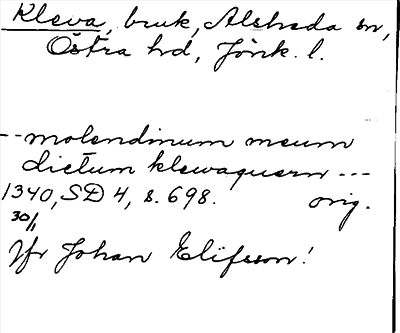 Kleva, bruk, Alsheda sn,
Östra hd, Jönk. l.
--molendinum meum
dictum klewaquern ---
1340, SD 4, s. 698. orig.
30/1
Jfr Johan Elifsson!